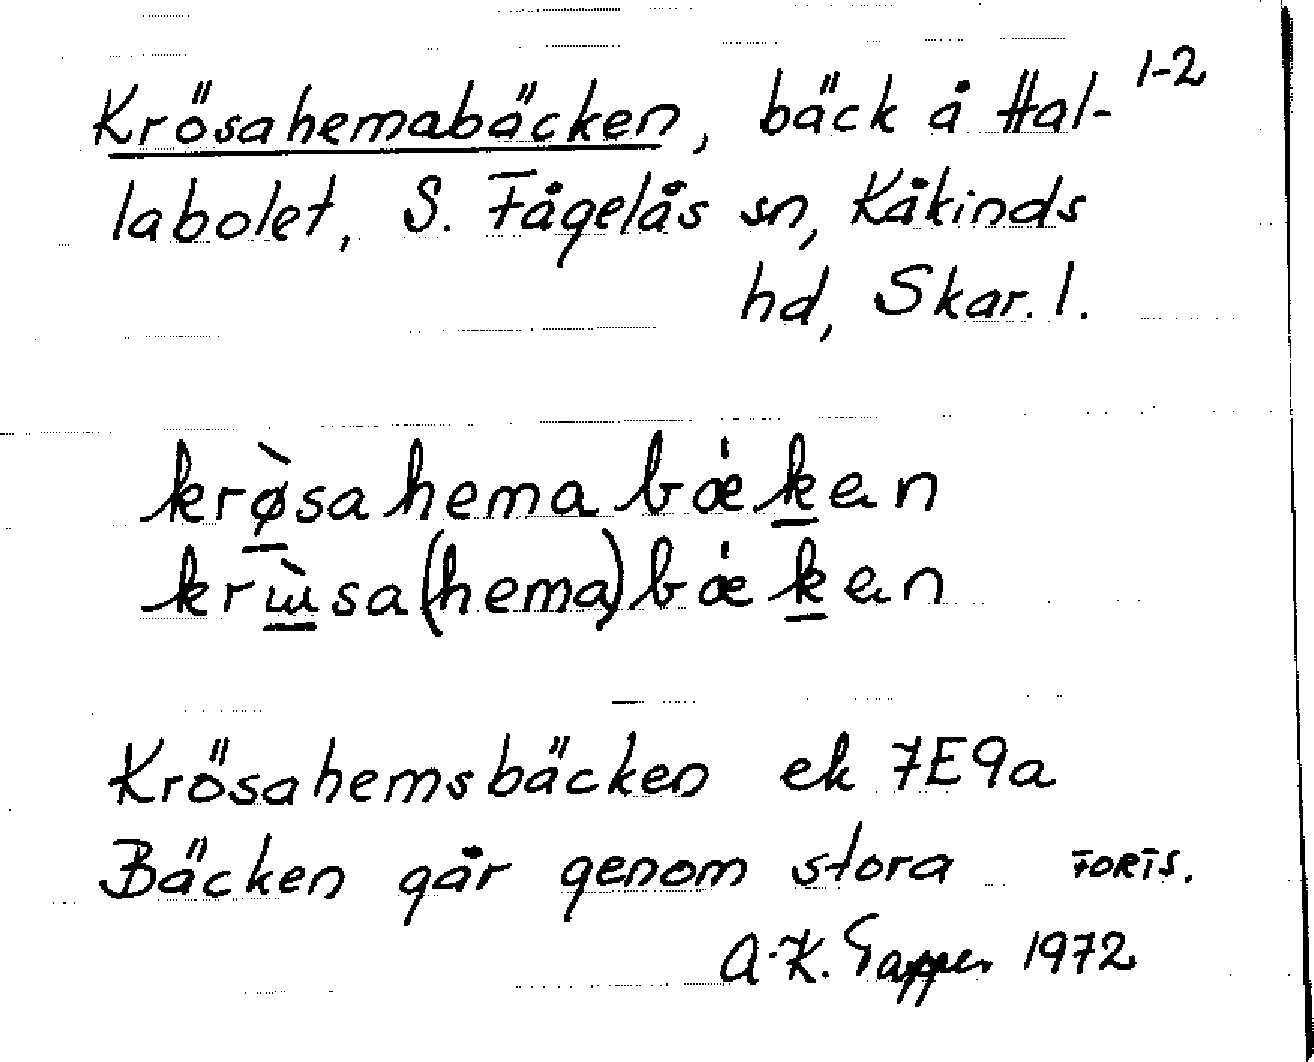 Krösahemabäcken, bäck å Hal- 1-2
labolet, S. Fågelås sn, Kåkinds
hd, Skar. l.
krø̀sahemabǽken
krɯ̀sa(hema)bǽken
Krösahemsbäcken ek 7E9a
Bäcken går genom stora FORTS.
A-K. Tapper 1972